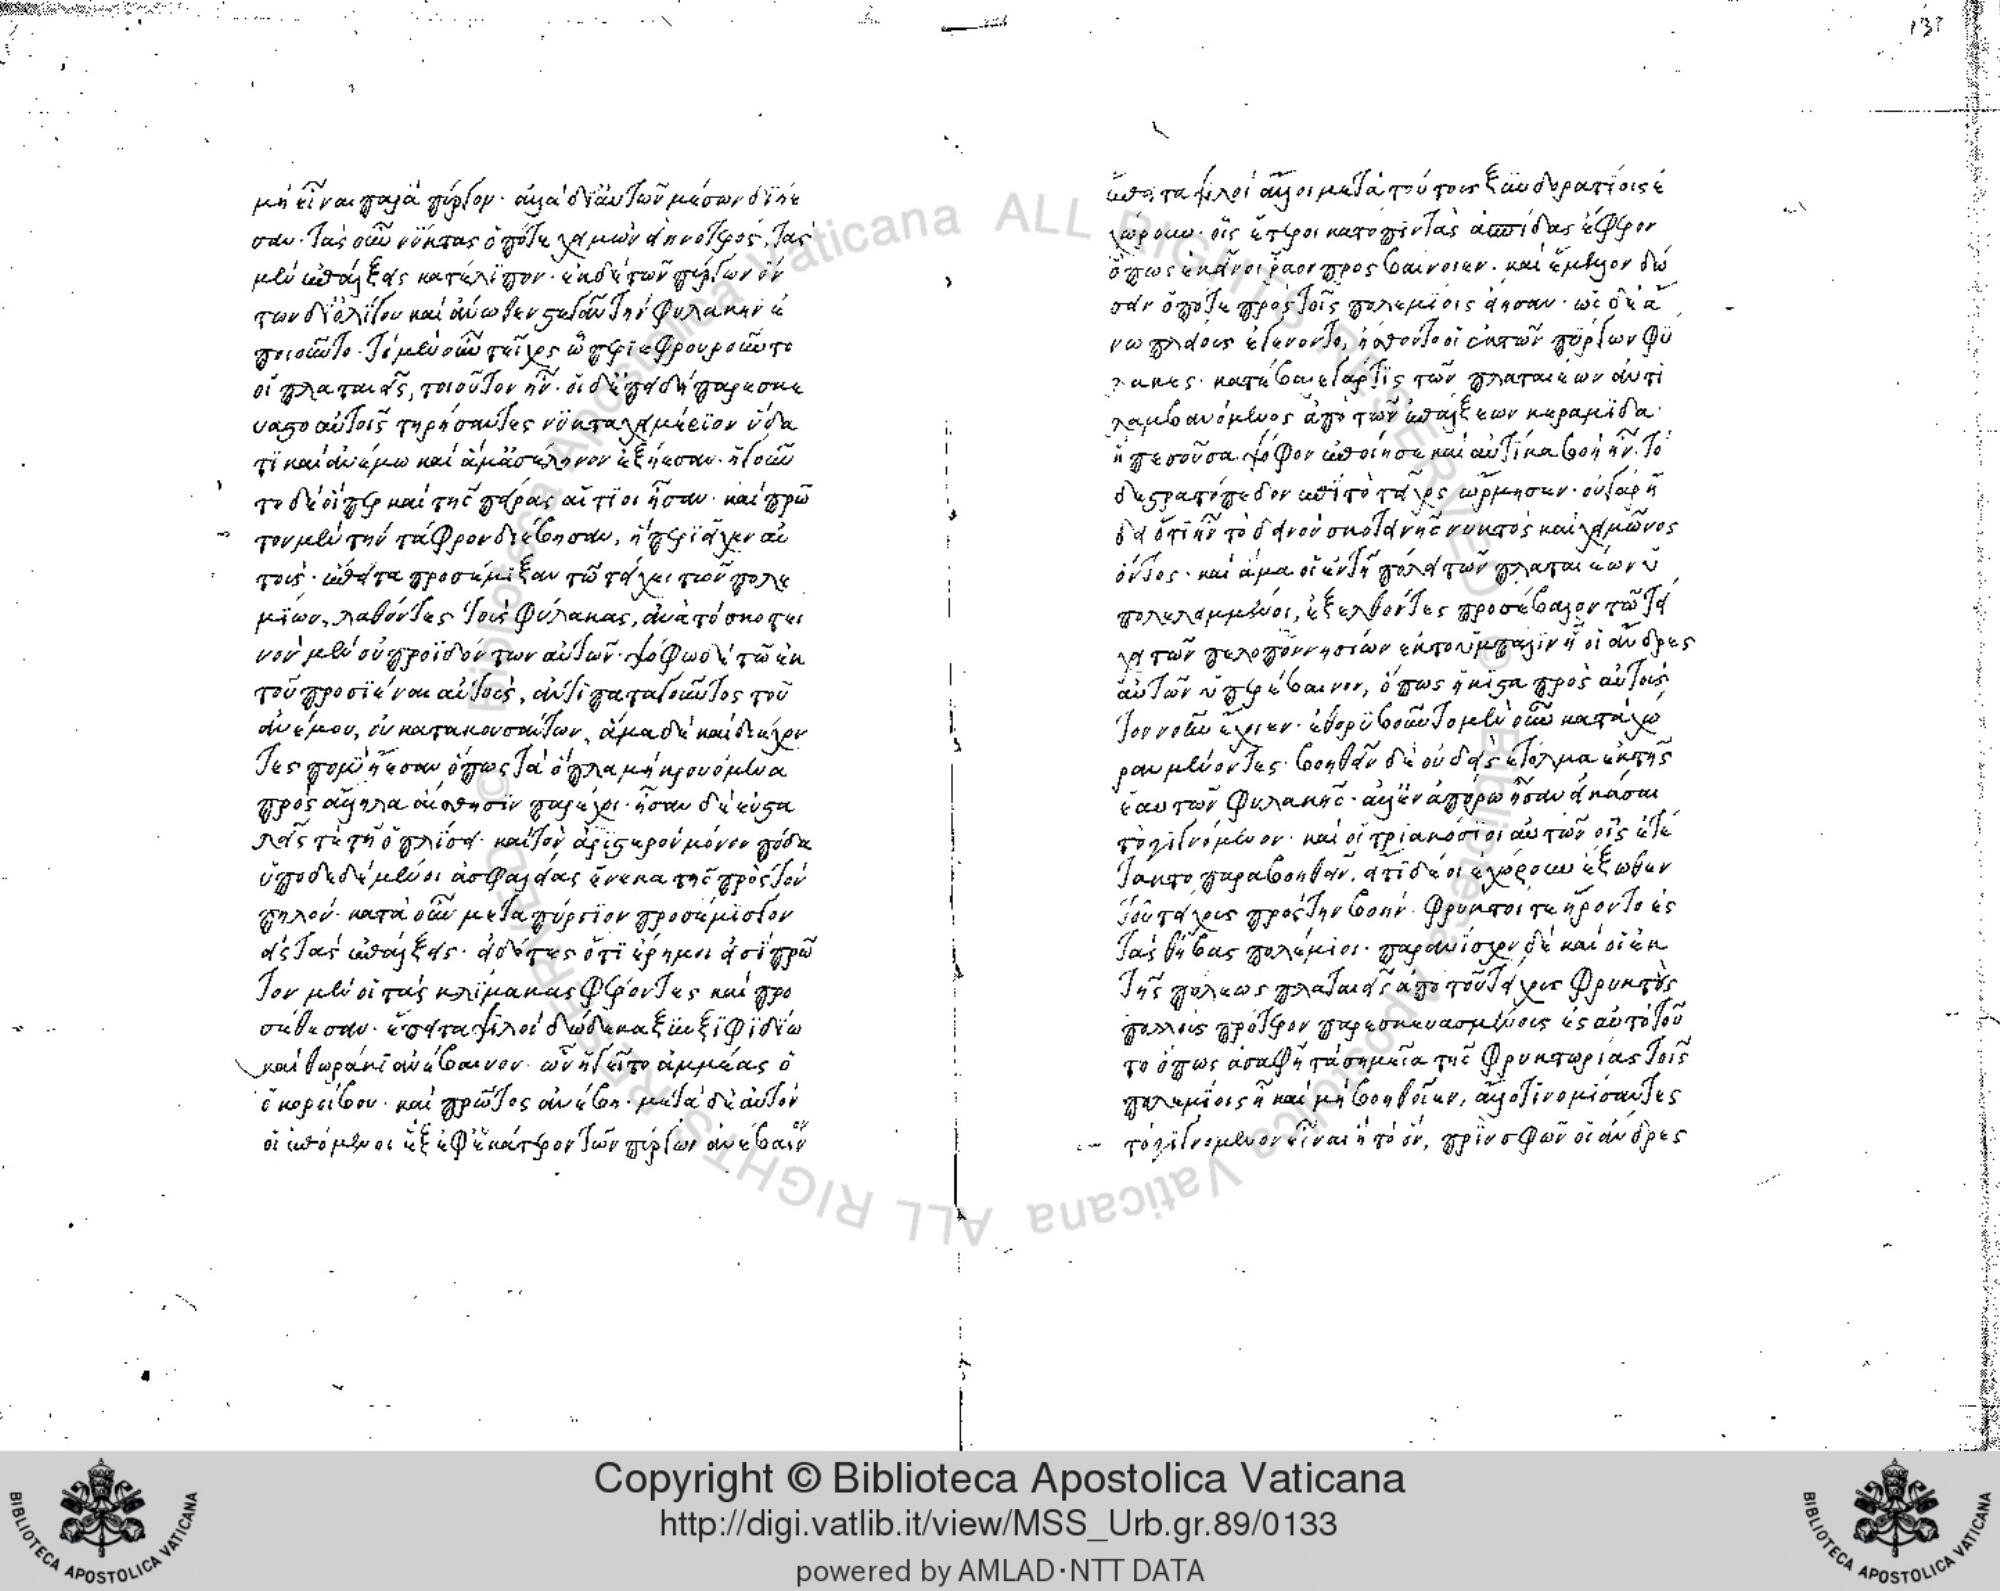 μὴ εἶναι παρὰ πύργον· ἀλλὰ δι᾽ αὐτῶν μέσων διῄε
σαν· τὰς οὖν νύκτας ὁπότε χειμὼν εἴη νοτερός, τὰς
μὲν ἐπάλξεις κατέλιπον· ἐκ δὲ τῶν πύργων ὄν
των δι᾽ ὀλίγου καὶ ἄνωθεν στεγανῶν τὴν φυλακὴν ἐ
ποιοῦντο· τὸ μὲν οὖν τεῖχος ᾧ περιεφρουροῦντο
οἱ πλαταιεῖς, τοιοῦτον ἦν· οἱ δ᾽ ἐπειδὴ παρεσκεύ
αστο αὐτοῖς τηρήσαντες νύκτα χειμέριον ὕδα
τι καὶ ἀνέμω καὶ ἅμ᾽ ἀσέληνον ἐξῄεσαν· ἡγοῦν
το δὲ οἵπερ καὶ τῆς πείρας αἴτιοι ἦσαν· καὶ πρῶ
τον μὲν τὴν τάφρον διέβησαν, ἣ περιεῖχεν αὐ
τοὺς· ἔπειτα προσέμιξαν τῶ τείχει τῶν πολε
μίων, λαθόντες τοὺς φύλακας, ἀνὰ τὸ σκοτει
νὸν μὲν οὐ προϊδόντων αὐτῶν· ψόφω δὲ τῶ ἐκ
τοῦ προσιέναι αὐτοὺς, ἀντιπαταγοῦντος τοῦ
ἀνέμου, οὐ κατακουσάντων, ἅμα δὲ καὶ διέχον
τες πολὺ ᾔεσαν ὅπως τὰ ὅπλα μὴ κρουόμενα
πρὸς ἄλληλα αἴσθησιν παρέχοι· ἦσαν δὲ εὐστα
λεῖς τε τῇ ὁπλίσει· καὶ τὸν ἀριστερὸν μόνον πόδα
ὑποδεδεμένοι ἀσφαλείας ἕνεκα τῆς πρὸς τὸν
πηλόν· κατὰ οὖν μεταπύργιον προσέμισγον
πρὸς τὰς ἐπάλξεις· εἰδότες ὅτι ἐρῆμοι εἰσὶ πρῶ
τον μὲν οἱ τὰς κλίμακας φέροντες καὶ προ
σέθεσαν· ἔπειτα ψιλοὶ δώδεκα ξὺν ξιφιδίω
καὶ θώρακι ἀνέβαινον· ὧν ἡγεῖτο ἀμμέας ὁ
ὁ κοροίβου· καὶ πρῶτος ἀνέβη· μετὰ δὲ αὐτὸν
οἱ ἑπόμενοι ἓξ ἐφ᾽ ἑκάτερον τῶν πύργων ἀνέβαιν
ἔπειτα ψιλοὶ ἄλλοι μετὰ τούτους ξὺν δορατίοις ἐ
χώρουν· οἷς ἕτεροι κατόπιν τὰς ἀσπίδας ἔφερον
ὅπως ἐκεῖνοι ῥᾶον προσβαίνοιεν· καὶ ἔμελλον δώ
σειν ὁπότε πρὸς τοῖς πολεμίοις εἴησαν· ὡς δὲ ἄ
νω πλείους ἐγένοντο, ᾔσθοντο οἱ ἐκ τῶν πύργων φύ
λακες· κατέβαλε γάρ τις τῶν πλαταιέων ἀντι
λαμβανόμενος ἀπὸ τῶν ἐπάλξεων κεραμίδα·
ἣ πεσοῦσα ψόφον ἐποίησε καὶ αὐτίκα βοὴ ἦν· τὸ
δὲ στρατόπεδον ἐπὶ τὸ τεῖχος ὥρμησεν· οὐ γὰρ ᾔ
δει ὅτι ἦν τὸ δεινὸν σκοτεινῆς νυκτὸς καὶ χειμῶνος
ὄντος· καὶ ἅμα οἱ ἐν τῇ πόλει τῶν πλαταιέων ὑ
πολελειμμένοι, ἐξελθόντες προσέβαλλον τῶ τεί
χει τῶν πελοποννησίων ἐκ τοὔμπαλιν ἢ οἱ ἄνδρες
αὐτῶν ὑπερέβαινον, ὅπως ἥκιστα πρὸς αὐτοὺς
τὸν νοῦν ἔχοιεν· ἐθορυβοῦντο μὲν οὖν κατὰ χώ
ραν μένοντες· βοηθεῖν δὲ οὐδεὶς ἐτόλμα ἐκ τῆς
ἑαυτῶν φυλακῆς· ἀλλ᾽ ἐν ἀπόρω ἦσαν εἰκάσαι
τὸ γιγνόμενον· καὶ οἱ τριακόσιοι αὐτῶν οἷς ἐτέ
τακτο παραβοηθεῖν, εἴ τι δέοι ἐχώρουν ἔξωθεν
τοῦ τείχους πρὸς τὴν βοήν· φρυκτοί τε ᾔροντο ἐς
τὰς θήβας πολέμιοι· παρανίσχον δὲ καὶ οἱ ἐκ
τῆς πόλεως πλαταιεῖς ἀπὸ τοῦ τείχους φρυκτοὺς
πολλοὺς πρότερον παρεσκευασμένους ἐς αὐτὸ τοῦ
το ὅπως ἀσαφῆ τὰ σημεῖα τῆς φρυκτωρίας τοῖς
πολεμίοις ᾖ καὶ μὴ βοηθοῖεν, ἄλλο τι νομίσαντες
τὸ γιγνόμενον εἶναι ἢ τὸ ὄν, πρὶν σφῶν οἱ ἄνδρες
Copyright © Biblioteca Apostolica Vaticana
http://digi.vatlib.it/view/MSS_Urb.gr.89/0133
powered by AMLAD·NTT DATA